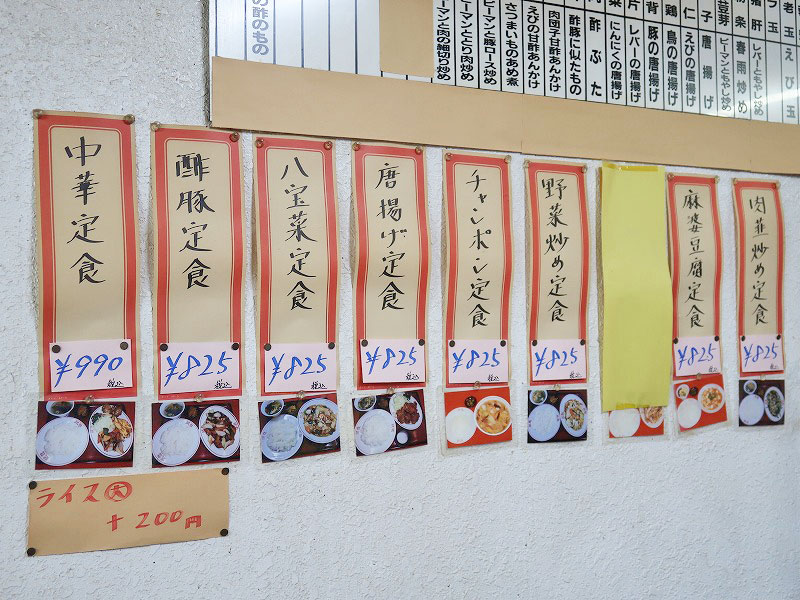 老玉
えび玉
猪肝
レバーともやし炒め
春雨炒め
芸芽
ピーマンともやし炒め
子唐揚げ
仁
えびの唐揚げ
鶏
鳥の唐揚げ
背
豚の唐揚げ
片
レバーの唐揚げ
菜
にんにくの唐揚げ
酢ぶた
酢豚に似たもの
肉団子甘酢あんかけ
えびの甘酢あんかけ
さつまいものあめ煮
ピーマンと豚ロース炒め
ピーマンととり肉炒め
ピーマンと肉の細切り炒め
の酢のもの
肉韮炒め定食
¥825
税込
麻婆豆腐定食
¥825
税込
野菜炒め定食
¥825
税込
チャンポン定食
¥825
税込
唐揚げ定食
¥825
税込
八宝菜定食
¥825
税込
酢豚定食
¥825
税込
中華定食
¥990
税込
ライス大
+200円